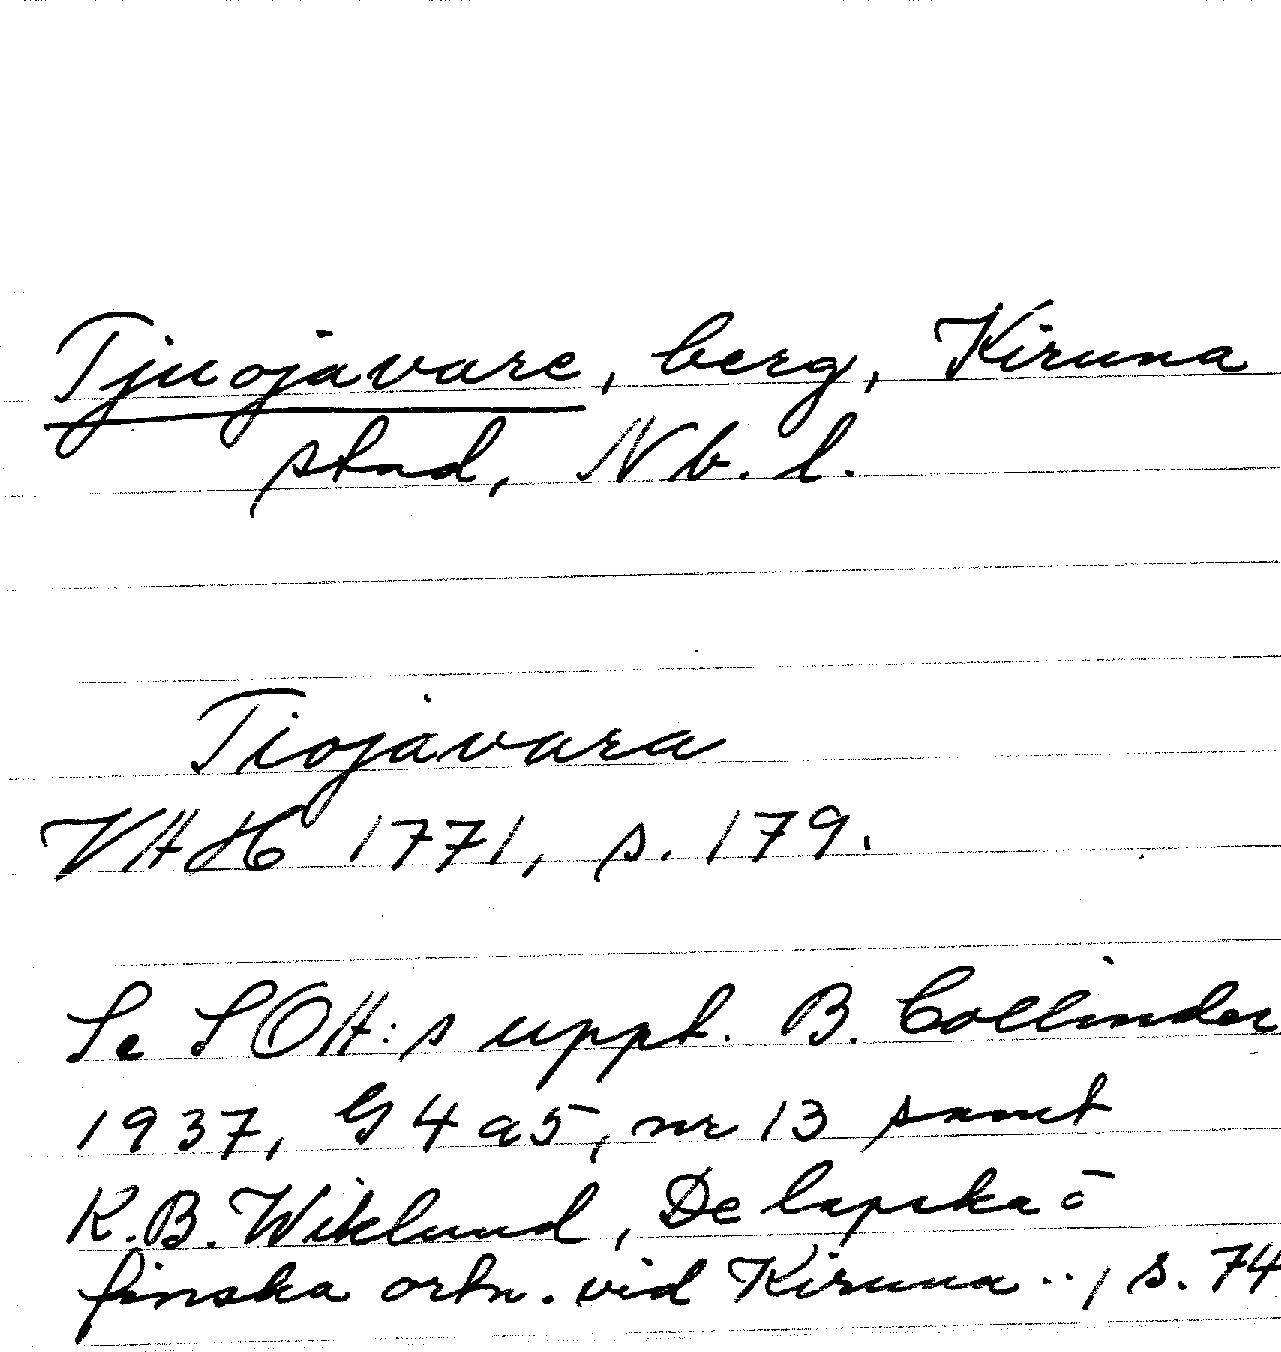 Tjuojavare, berg, Kiruna
stad, Nb. l.
Tiojavara
VAH 1771, s. 179.
Se SOA:s uppt. B. Collinder
1937, G 4 a5, nr 13 samt
K.B. Wiklund, De lapska o
finska ortn. vid Kiruna .., s. 74